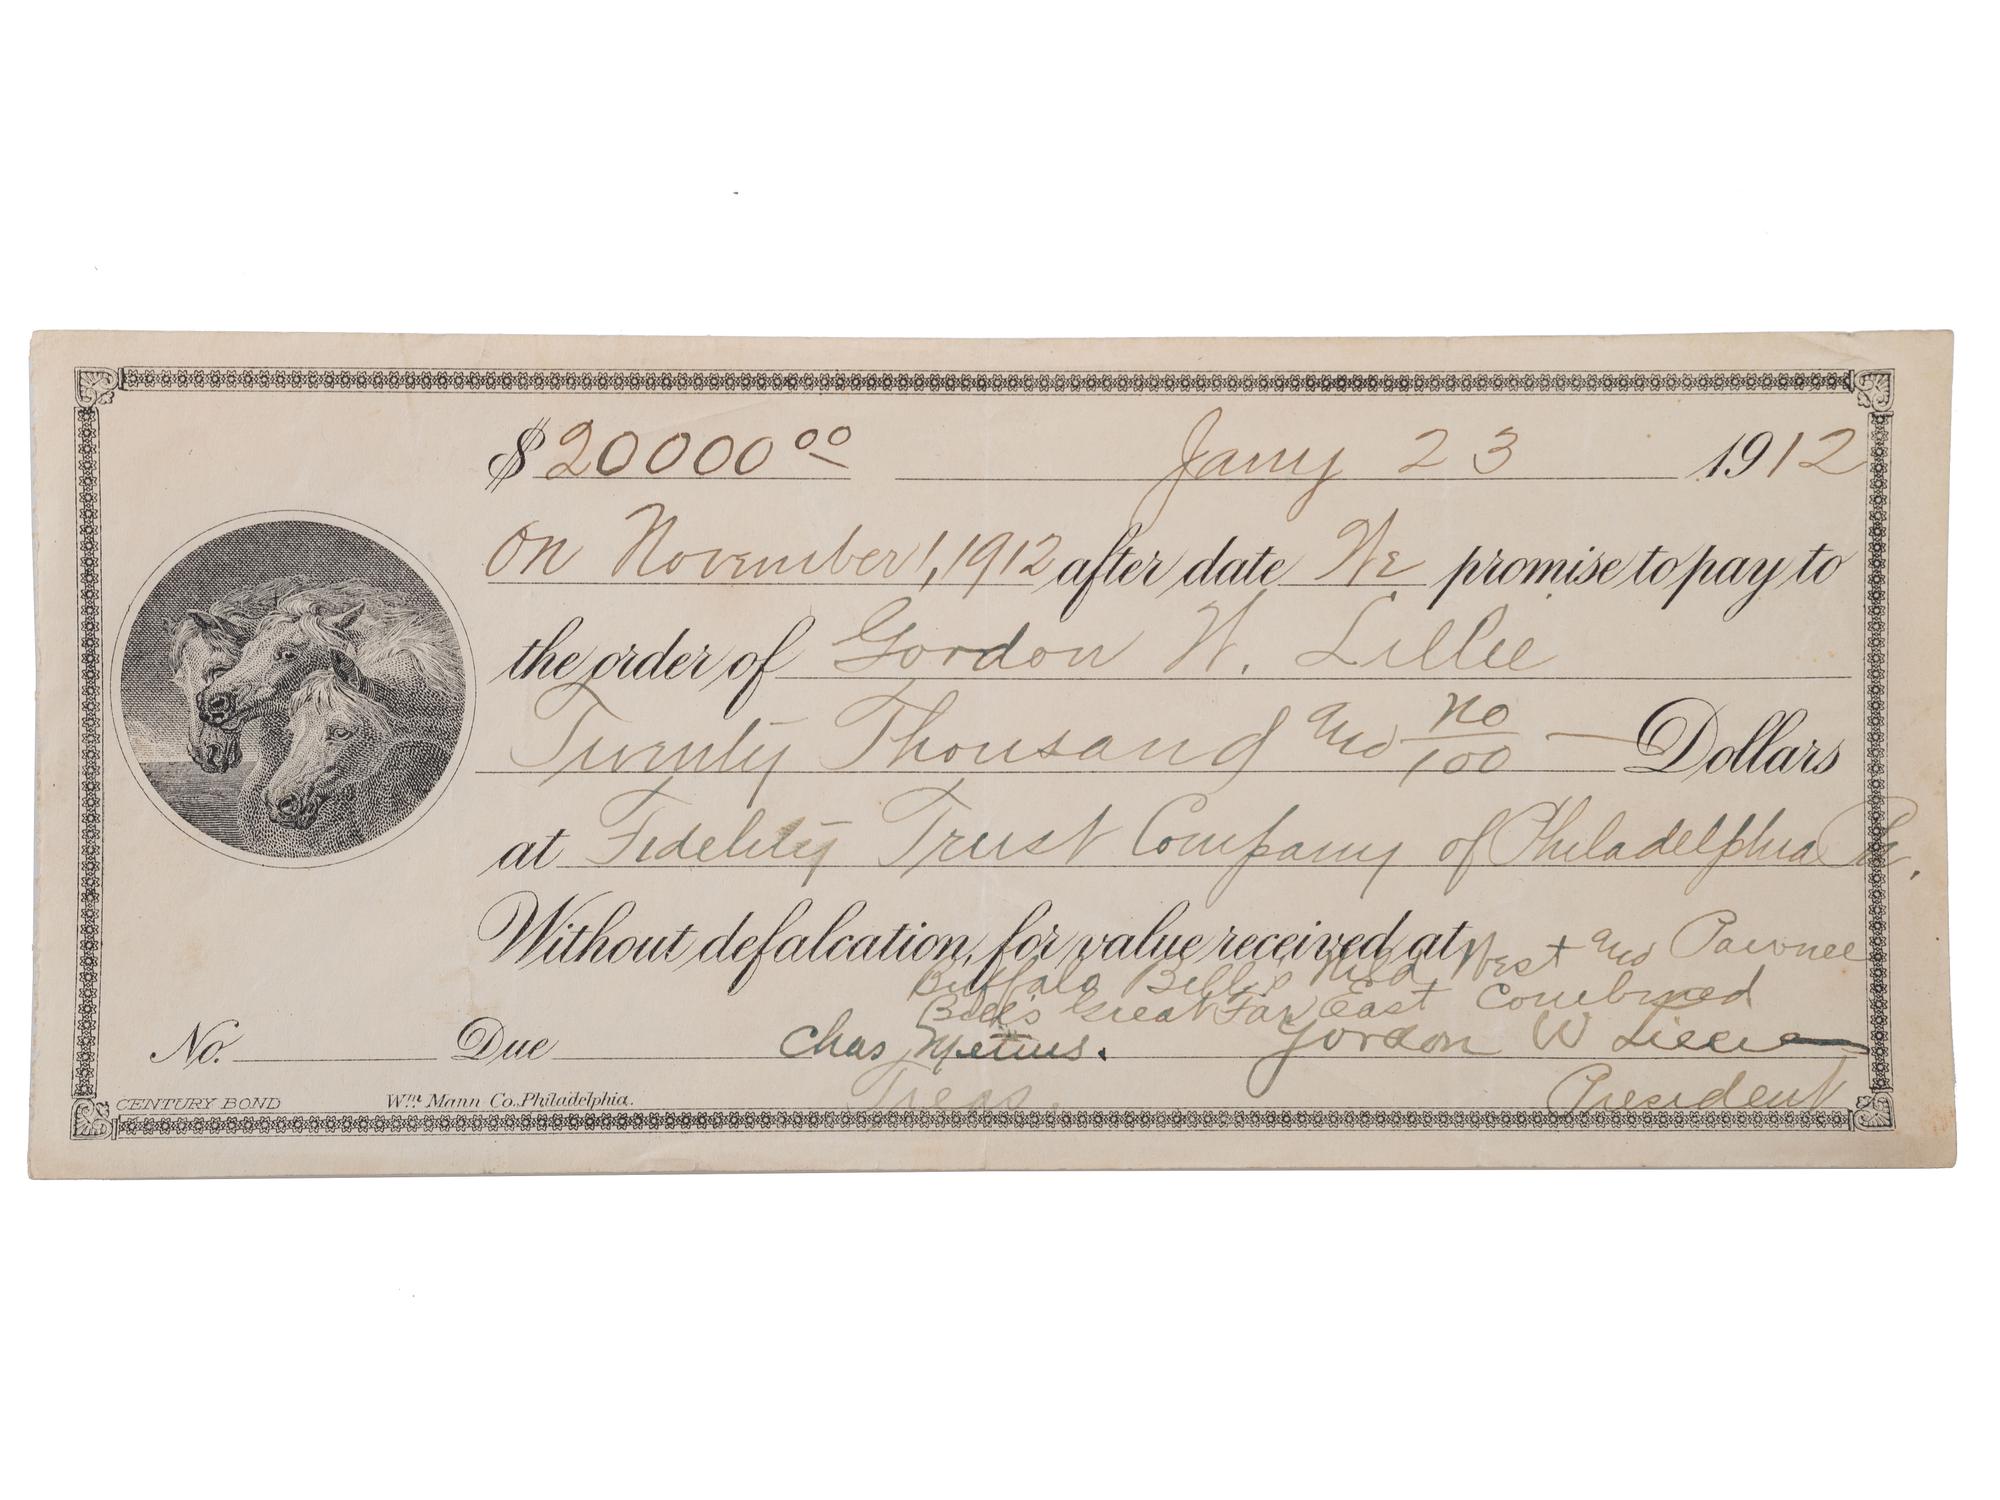 $ 20000 00 Jany 23 1912
On November 1, 1912 after date We promise to pay to
the order of Gordon W. Lillie
Twenty Thousand and no/100 — Dollars
at Fidelity Trust Company of Philadelphia Pa.
Without defalcation, for value received at
Buffalo Bill's Wild West and Pawnee
Bill's Great Far East Combined
No. Due Chas Metius. Gordon W Lillie
Treas. President
CENTURY BOND Wm Mann Co. Philadelphia.